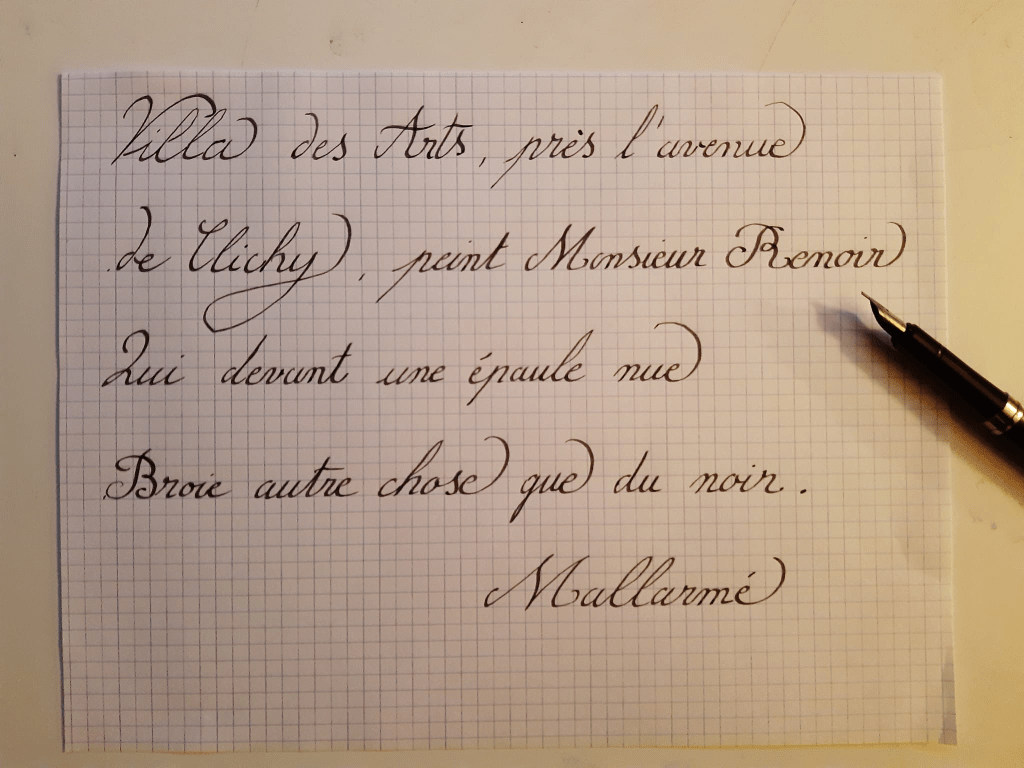 Villa des Arts, près l'avenue
de Clichy, peint Monsieur Renoir
Qui devant une épaule nue
Broie autre chose que du noir.
Mallarmé